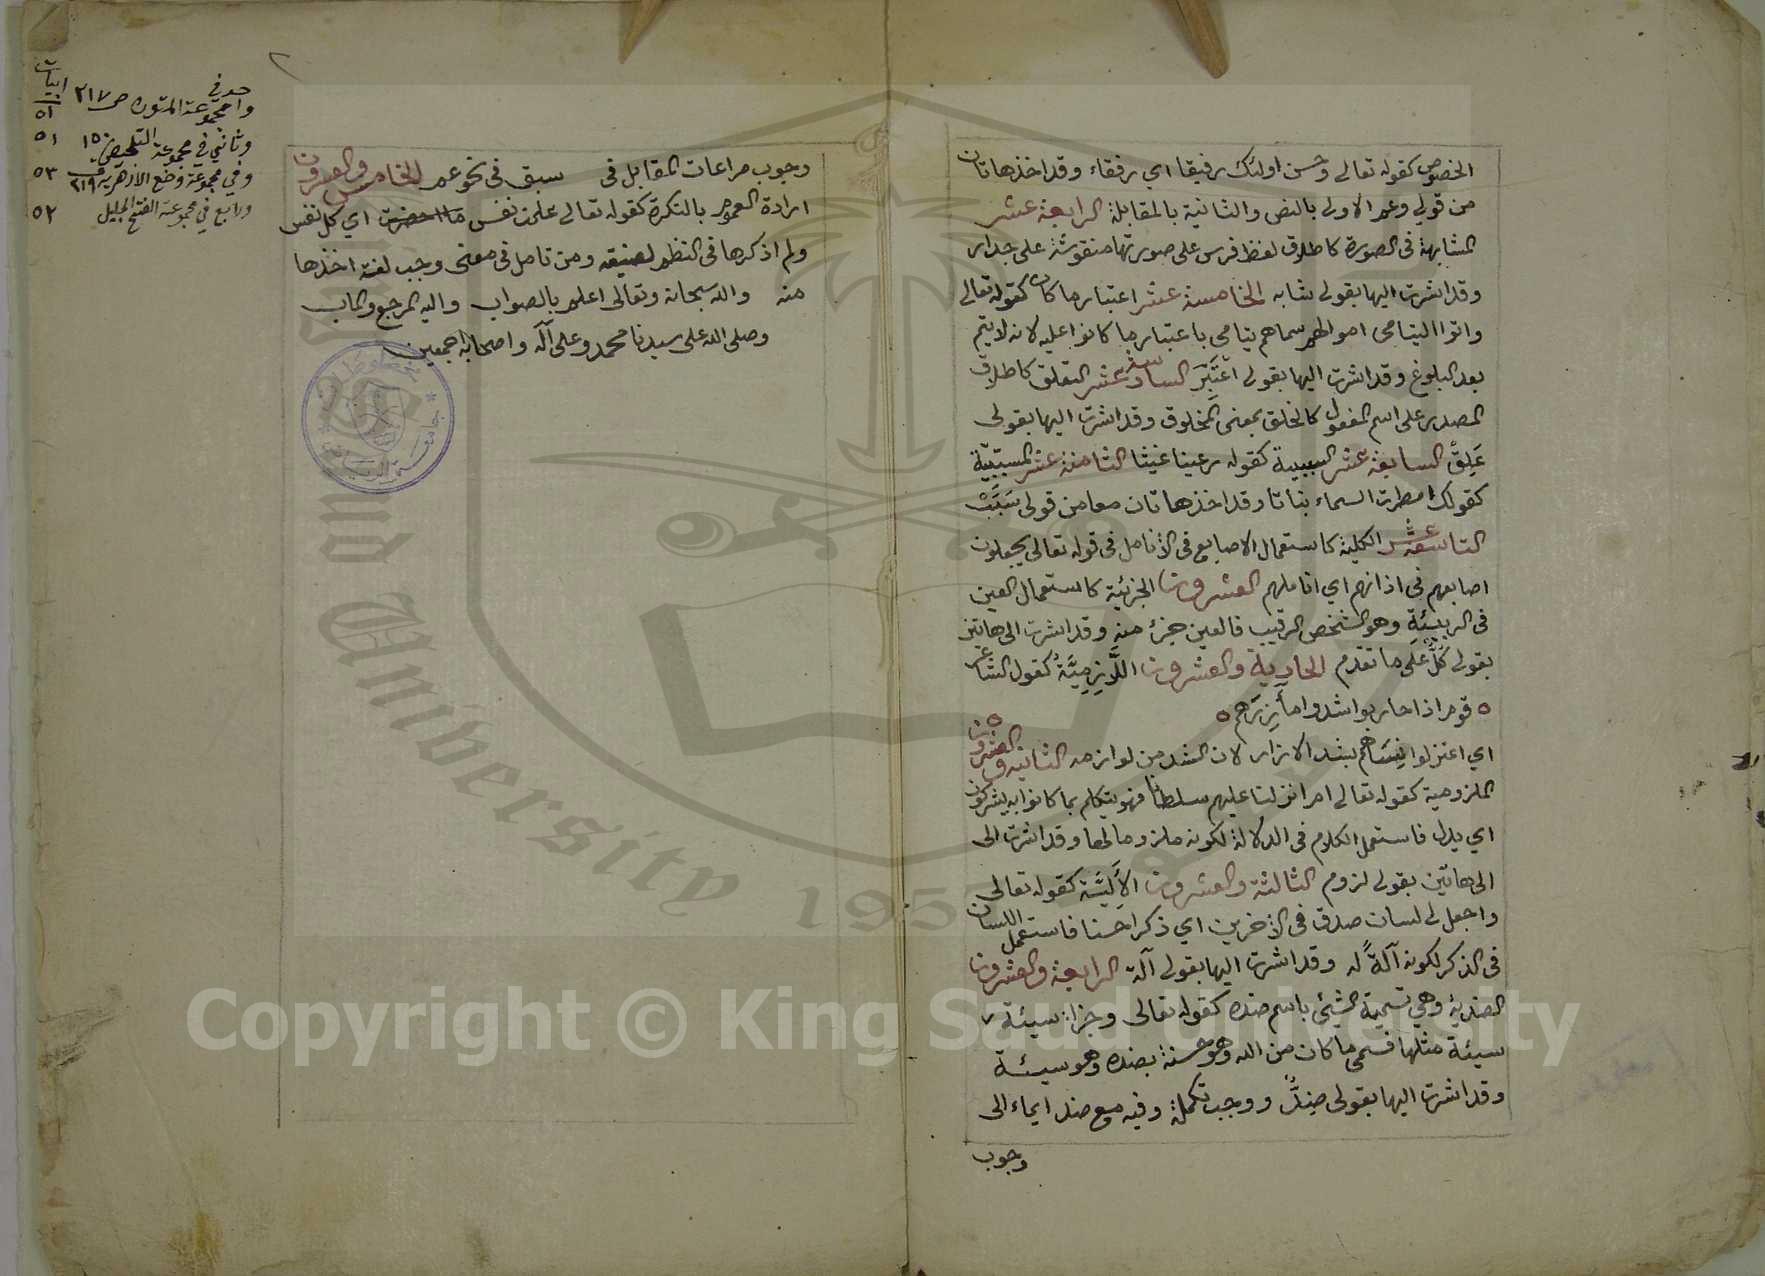 الخصوص كقوله تعالى وحسن اولئك رفيقا اي رفقاء وقد اخذ هاتان
من قولي وعم الاولى بالنص والثانية بالمقابلة الرابعة عشر
المشابهة في الصورة كاطلاق لفظ فرس على صورتها منقوشة على جدار
وقد اشرت اليها بقولي شابه الخامسة عشر اعتبار ما كان كقوله تعالى
واتوا اليتامى اموالهم سماهم يتامى باعتبار ما كانوا عليه لانه لا يتم
بعد البلوغ وقد اشرت اليها بقولي اعتبر السادسة عشر التعلق كاطلاق
المصدر على اسم المفعول كالخلق بمعنى المخلوق وقد اشرت اليها بقولي
علق السابعة عشر السببية كقوله رعينا غيثا الثامنة عشر المسببية
كقولك امطرت السماء نباتا وقد اخذ هاتان معا من قولي سبب
التاسعة عشر الكلية كاستعمال الاصابع في الأنامل في قوله تعالى يجعلون
اصابعهم في اذانهم اي اناملهم العشرون الجزئية كاستعمال العين
في الربيئة وهو الشخص الرقيب فالعين جزء منه وقد اشرت الى هاتين
بقولي كل على ما تقدم الحادية والعشرون اللازمية كقول الشاعر
ه قوم اذا حاربوا شدوا مأزرهم ه
اي اعتزلوا نساهم بشد الازار لان الشد من لوازمه الثانية والعشرون
الملزومية كقوله تعالى ام انزلنا عليهم سلطانا فهو يتكلم بما كانوا به يشركون
اي يدل فاستعمل الكلام في الدلالة لكونه ملزوما لها وقد اشرت الى
الى هاتين بقولي لزوم الثالثة والعشرون الآلية كقوله تعالى
واجعل لي لسان صدق في الآخرين اي ذكرا حسنا فاستعمل اللسان
في الذكر لكونه آلة له وقد اشرت اليها بقولي آلة الرابعة والعشرون
الضدية وهي تسمية الشيئ باسم ضده كقوله تعالى وجزاء سيئة
سيئة مثلها فسمى ما كان من الله وهو حسنة بضده وهو سيئة
وقد اشرت اليها بقولي ضد ووجب تكملة وفيه مع ضد ايماء الى
وجوب
وجوب مراعات المقابل في سبق في نحو عم الخامس والعشرون
ارادة العموم بالنكرة كقوله تعالى علمت نفس ما احضرت اي كل نفس
ولم اذكرها في النظم لضيقه ومن تامل في معنى وجب لغة اخذها
منه والله سبحانه وتعالى اعلم بالصواب واليه المرجع والماب
وصلى الله على سيدنا محمد وعلى آله واصحابه اجمعين
ابيات
وا مجموعة المتون ص ٢١٧ ٥١
وثاني في مجموعة التلخيص ١٥٠ ٥١
وفي مجموعة وضع الازهرية ٢١٩ ٥٣
ورابع في مجموعة الفتح الجليل ٥٢
King Saud University 1957
Copyright © King Saud University